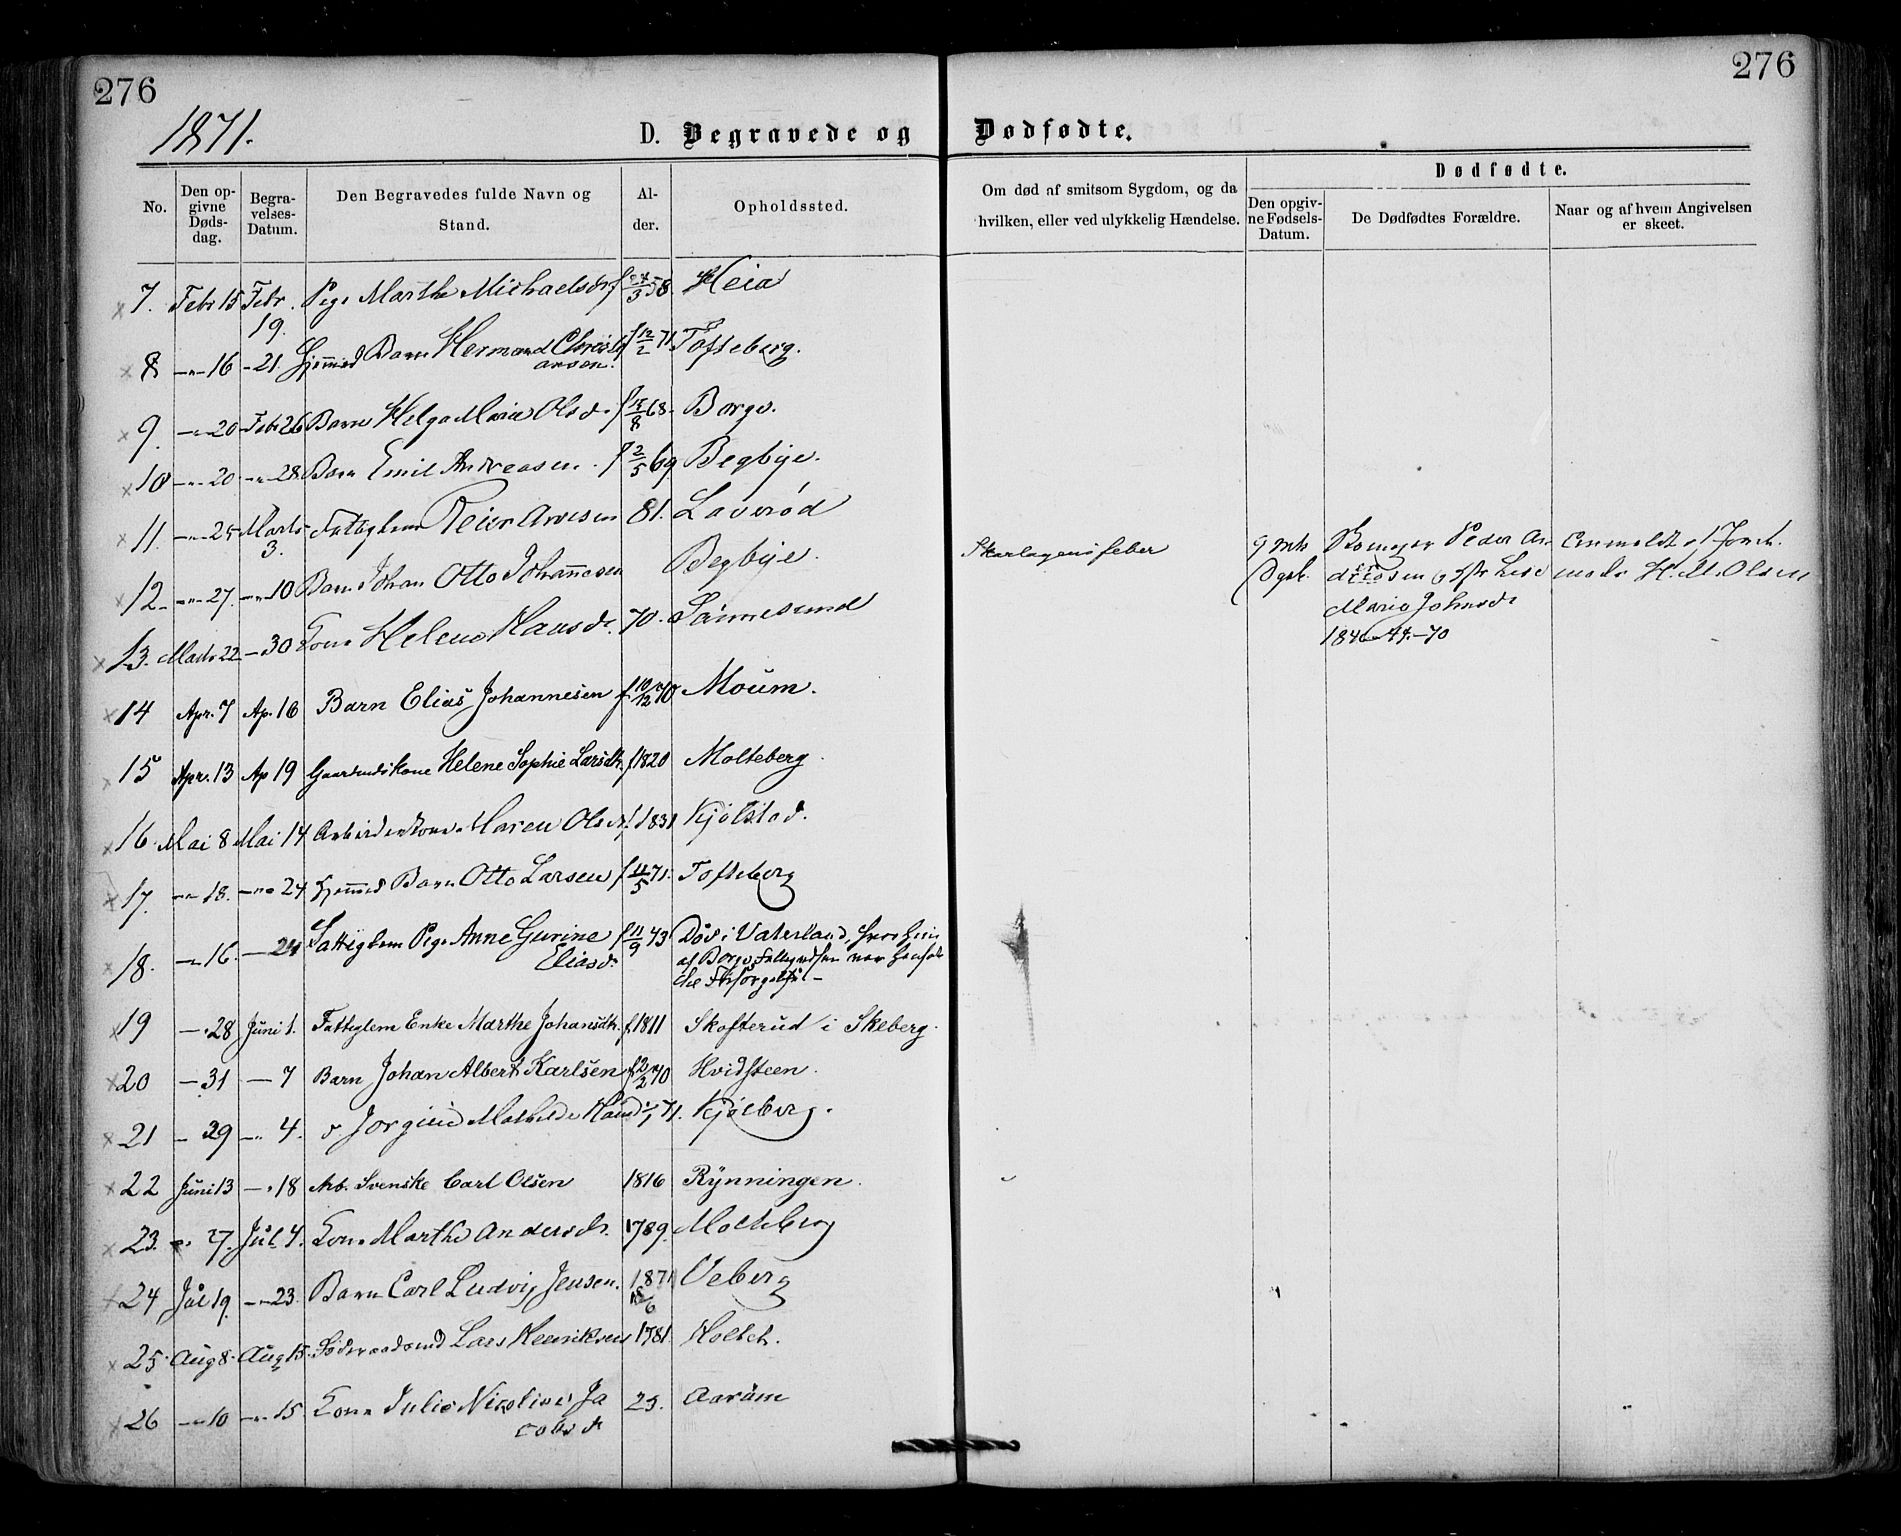 276
276
1871.
D. Begravede og Dødfødte.
No.
Den opgivne Dødsdag.
Begravelses-Datum.
Den Begravedes fulde Navn og Stand.
Alder.
Opholdssted.
Om død af smitsom Sygdom, og da hvilken, eller ved ulykkelig Hændelse.
Dødfødte.
Den opgivne Fødsels-Datum.
De Dødfødtes Forældre.
Naar og af hvem Angivelsen er skeet.
7. Febr 15 Febr 19. Pige Marthe Michaelsdr f 3 58. Heia
8 -"- 16 - 21. Hjemmed Barn Hermand Christiansen. f 12/2 71. Tofteberg.
9. -"- 20 Febr 26 Barn Helga Marie Olsd. f 8 68. Borge.
10 -"- 20. -"- 28. Barn Emil Andreasen. f 2/5 69. Begbye.
11. -"- 25 Marts 3. Fattiglem Peier Arvesen 81. Laverød
12. -"- 27. -"- 10 Barn Johan Otto Johannesen Begbye. Skarlagensfeber
13. Marts 22 - 30 Kone Helene Hansd. 70. Sannesund
9 Mts Dgsb. Peder Andersen Marie Johnsdr 1840 - 44. - 70
Anmeldt af Jordemoder H. M. Olsen
14 Apr. 7 Ap. 16 Barn Elias Johannesen f. 10/12 70 Moum.
15 Apr. 13 Ap 19 Gaardmdskone Helene Sophie Larsdtr. f 1820 Molteberg.
16. Mai 8 Mai 14 Arbeiderkone Maren Olsdr. f 1831 Kjølstad.
17. -"- 18. -"- 24 Hjemmed Barn Otto Larsen f 11/5 71. Tofteberg
18. -"- 16. - 24 Fattiglem Pige Anne Gurine Eliasdr f 11/9 43 Død i Vaterland, hvor hun af Borge var
19 - 28 Juni 1. Fattiglem Enke Marthe Johansdtr. f. 1811 Skofterud i Skeberg.
20 - 31 - 7 Barn Johan Albert Karlsen f 2/2 70 Hvidsteen.
21 - 29 -"- 4. Jørgine Mathilde Hansd 71. Kjølberg.
22 Juni 13 - 18 Arb. Svenske Carl Olsen 1816 Rynningen.
23. -"- 27. Jul. 4. Kone Marthe Andersdr. 1789. Molteberg
24 Jul 19. -"- 23. Barn Carl Ludvig Jensen. 1871 6 Veberg
25 Aug 8. Aug 15. Føderaadsmd Lars Henriksen 1781. Holtet.
26 -"- 10 -"- 15 Kone Julie Nicoline Jacobsdr 25. Aarum